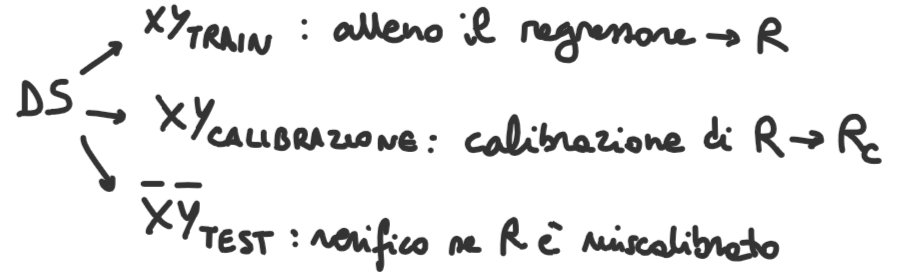 XY TRAIN : alleno il regressore → R
DS → XY CALIBRAZIONE : calibrazione di R → Rc
X̅Y̅ TEST : verifico se R è miscalibrato